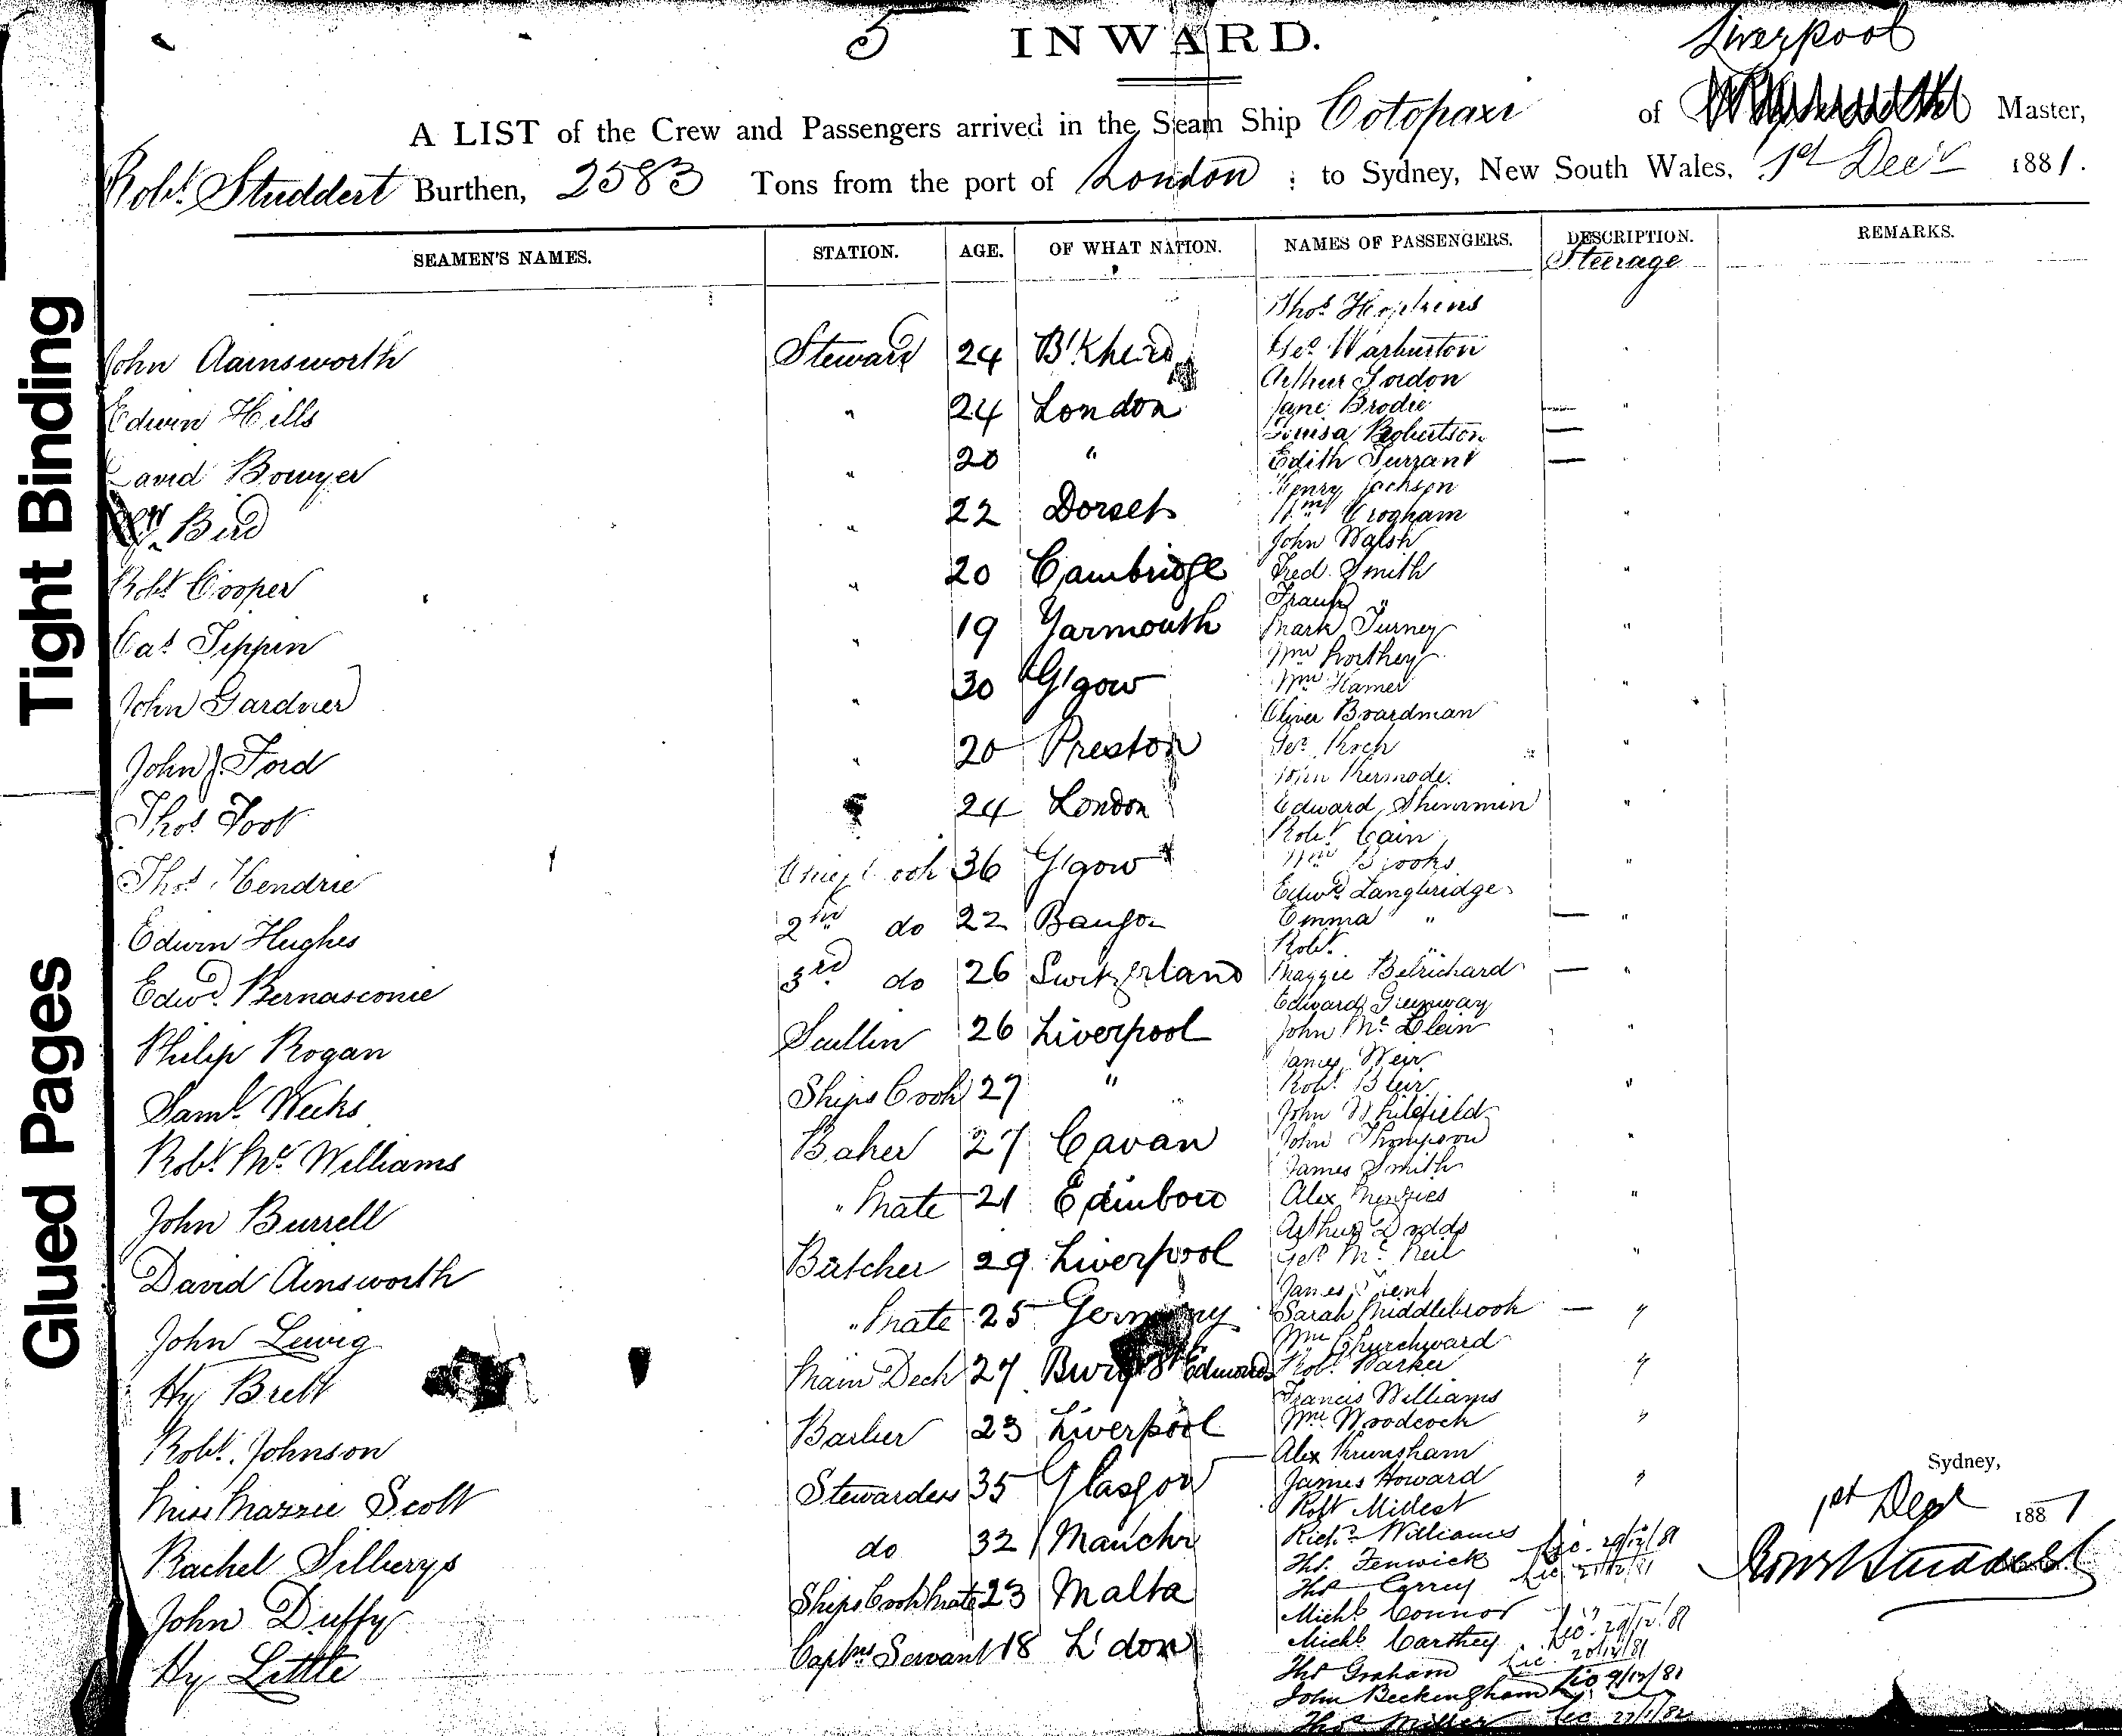 5 INWARD. Liverpool
A LIST of the Crew and Passengers arrived in the Steam Ship Cotopaxi of Master,
Robt. Studdert Burthen, 2583 Tons from the port of London ; to Sydney, New South Wales, 1st Decr 1881.
SEAMEN'S NAMES. STATION. AGE. OF WHAT NATION. NAMES OF PASSENGERS. DESCRIPTION. REMARKS.
Steerage
Thos Hopkins
John Aainsworth Steward 24 B'Khead Geo Warburton "
Arthur Gordon
Edwin Hills " 24 London Jane Brodie — "
Louisa Robertson —
David Bowyer " 20 " Edith Turrant —
Henry Jackson
Wm Bird " 22 Dorset Wm Crogham "
John Walsh
Robt Cooper " 20 Cambridge Fred. Smith "
Frank "
Cas Tippin " 19 Yarmouth Mark Turney "
Wm Northey
John Gardner " 30 G'gow Wm Hamer "
Oliver Boardman
John J. Ford " 20 Preston Geo Koch "
John Kermode
Thos Foot " 24 London Edward Shimmin "
Robt Cain
Thos Hendrie Chief Cook 36 G'gow Wm Brooks "
Edwd Langbridge
Edwin Hughes 2nd do 22 Bangor Emma " — "
Robt. "
Edwd Bernasconie 3rd do 26 Switzerland Maggie Belrichard — "
Edward Greenway
Philip Rogan Scullin 26 Liverpool John Mc "
James Weir
Saml. Weeks Ships Cook 27 " Robt Blair "
John Whitefield
Robt Mc Williams Baker 27 Cavan John Thompson "
James Smith
John Burrell " Mate 21 Edinboro Alex Menzies "
Arthur Dodds
David Ainsworth Butcher 29 Liverpool Geo Mc Neil "
James
John Lewig " Mate 25 Germany Sarah Middlebrook — "
Wm Churchward
Hy Brett Main Deck 27 Bury St Edmunds Robt Parker "
Francis Williams
Robt. Johnson Barber 23 Liverpool Wm Woodcock "
Alex
Miss Mazzie Scott Stewardess 35 Glasgow James Howard "
Robt
Rachel do 32 Manchr Richd Williams Lic. 20/12/81
Thos. Fenwick Lic 21/12/81
John Duffy Ships Cook Mate 23 Malta Thos
Michl Connor "
Hy Little Captns Servant 18 L'don Michl Carthey Lic. 20/12/81
Thos Graham Lic 20/12/81
John Beckingham Lic 9/12/81
Thos Miller Lic 22/1/82
Sydney,
1st Decr 1881
Robt Studdert
Master.
Tight Binding
Glued Pages